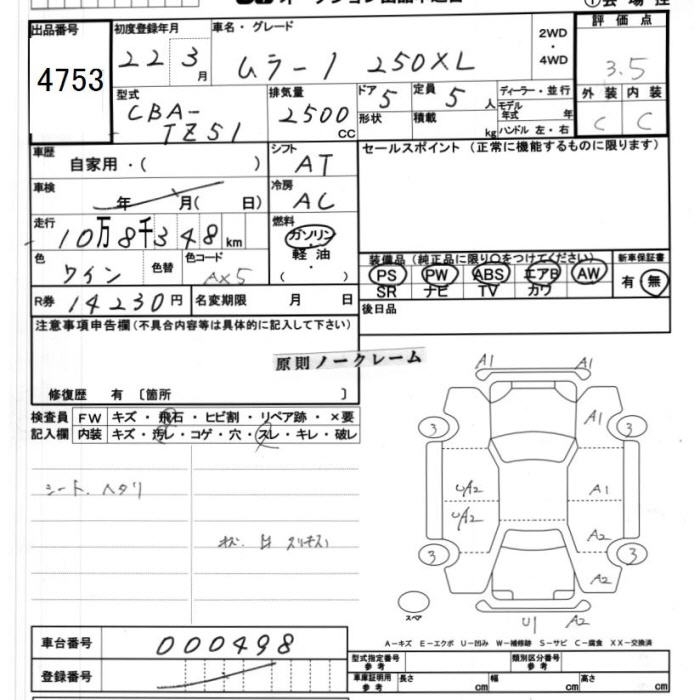 出品番号 4753
初度登録年月 22 3月
車名・グレード ムラーノ 250XL
2WD・4WD
評価点 3.5
外装 C 内装 C
型式 CBA-TZ51
排気量 2500 CC
ドア 5 定員 5 人
形状 積載 kg
ディーラー・並行
モデル年式 年
ハンドル 左・右
車歴 自家用・( )
シフト AT
セールスポイント (正常に機能するものに限ります)
車検 年 月( 日)
冷房 AC
走行 10万8千348km
燃料 ガソリン・軽油・( )
色 ワイン 色替 色コード AX5
装備品 (純正品に限り○をつけてください)
PS PW ABS エアB AW
SR ナビ TV カワ
新車保証書 有 無
R券 14230円 名変期限 月 日
後日品
注意事項申告欄 (不具合内容等は具体的に記入して下さい)
原則ノークレーム
修復歴 有 〔箇所 〕
検査員記入欄
FW キズ・飛石・ヒビ割・リペア跡・×要
内装 キズ・汚レ・コゲ・穴・スレ・キレ・破レ
シート、ヘタリ
A1 A1
3 A1 3
U/A2 A1
U/A2 A2
3 A2 3
スペア
U1 A2
A-キズ E-エクボ U-凹み W-補修跡 S-サビ C-腐食 XX-交換済
車台番号 000498
登録番号
型式指定番号 参考 類別区分番号 参考
車庫証明用 参考 長さ cm 幅 cm 高さ cm